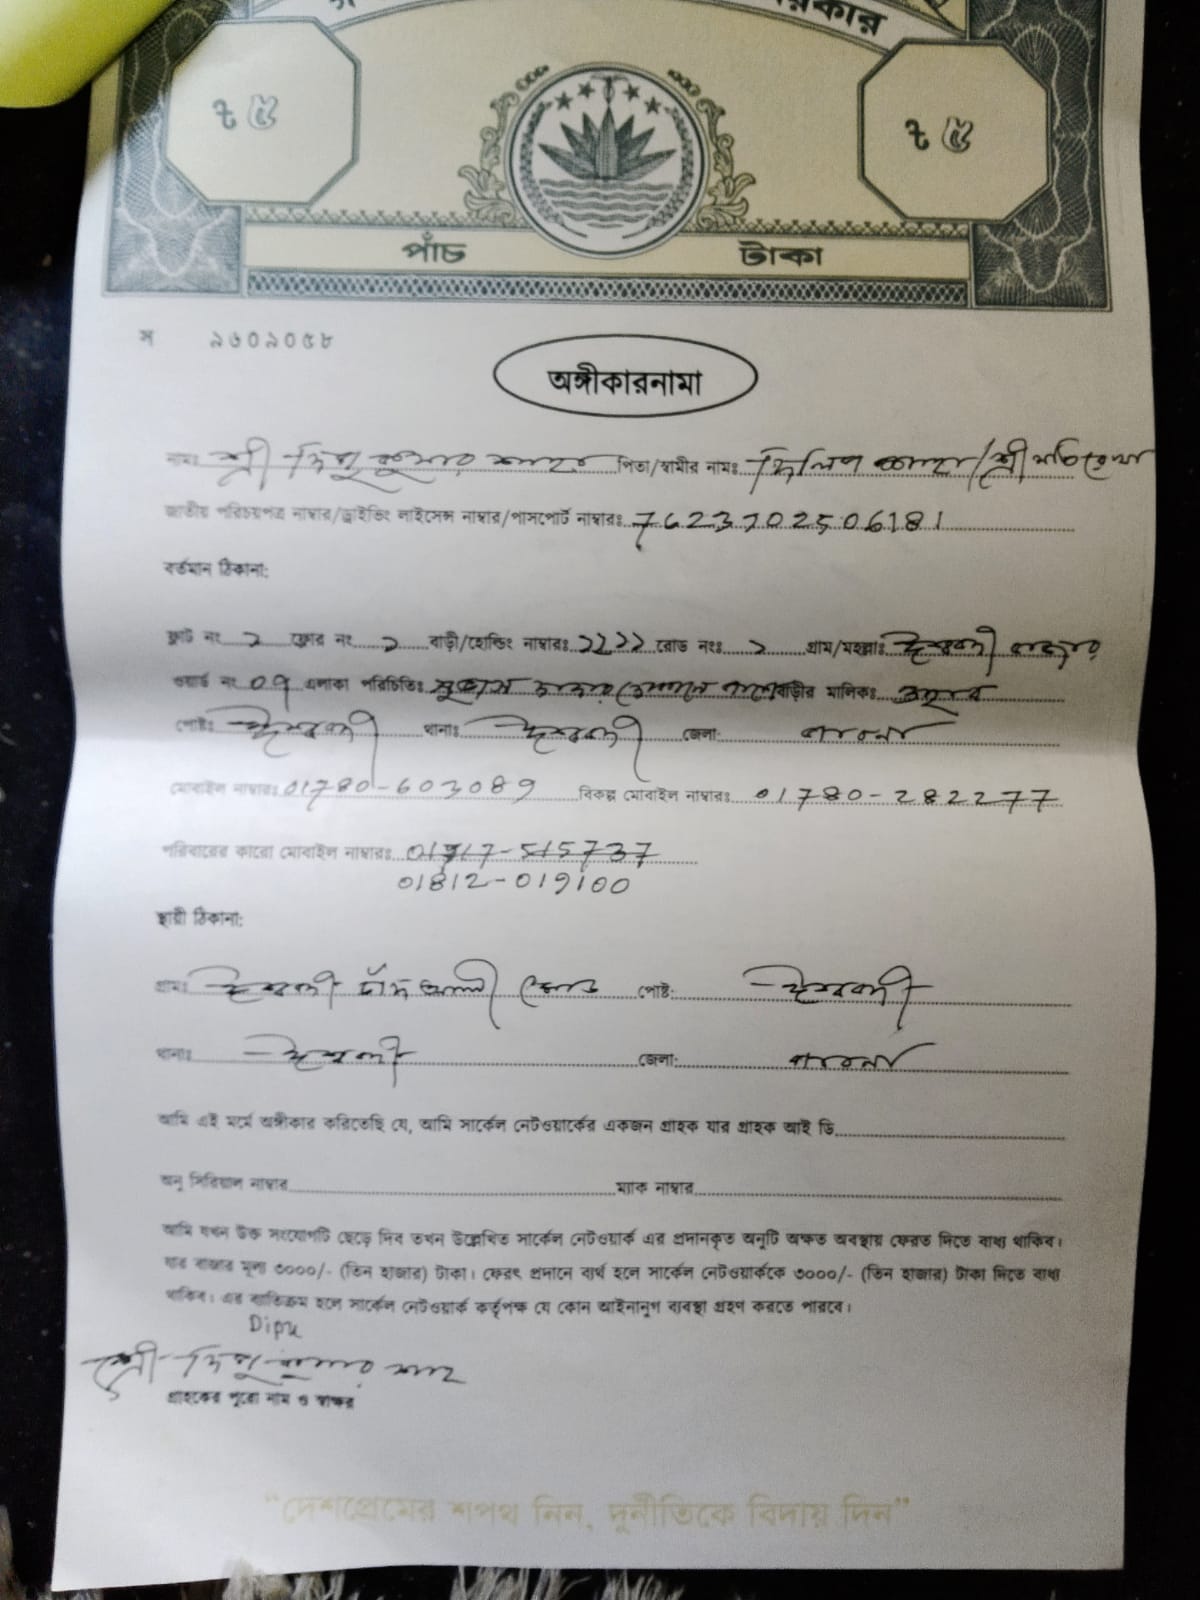 ৳ ৫ ৳ ৫
পাঁচ টাকা
স ৯৬০৯০৫৮
অঙ্গীকারনামা
নামঃ শ্রী দিপু কুমার সাহা পিতা/স্বামীর নামঃ দিলিপ সাহা/শ্রী
জাতীয় পরিচয়পত্র নাম্বার/ড্রাইভিং লাইসেন্স নাম্বার/পাসপোর্ট নাম্বারঃ 7623702506181
বর্তমান ঠিকানা:
ফ্লাট নং ২ ফ্লোর নং ২ বাড়ী/হোল্ডিং নাম্বারঃ রোড নংঃ গ্রাম/মহল্লাঃ ঈশ্বরদী বাজার
ওয়ার্ড নং 09 এলাকা পরিচিতিঃ বাড়ীর মালিকঃ
পোষ্টঃ ঈশ্বরদী থানাঃ ঈশ্বরদী জেলা: পাবনা
মোবাইল নাম্বারঃ 01780-603089 বিকল্প মোবাইল নাম্বারঃ 01780-282277
পরিবারের কারো মোবাইল নাম্বারঃ 01717-515737
01812-019100
স্থায়ী ঠিকানা:
গ্রামঃ ঈশ্বরদী চাঁদ আলী রোড পোষ্ট: ঈশ্বরদী
থানাঃ ঈশ্বরদী জেলা: পাবনা
আমি এই মর্মে অঙ্গীকার করিতেছি যে, আমি সার্কেল নেটওয়ার্কের একজন গ্রাহক যার গ্রাহক আই ডি
অনু সিরিয়াল নাম্বার ম্যাক নাম্বার
আমি যখন উক্ত সংযোগটি ছেড়ে দিব তখন উল্লেখিত সার্কেল নেটওয়ার্ক এর প্রদানকৃত অনুটি অক্ষত অবস্থায় ফেরত দিতে বাধ্য থাকিব।
যার বাজার মূল্য ৩০০০/- (তিন হাজার) টাকা। ফেরৎ প্রদানে ব্যর্থ হলে সার্কেল নেটওয়ার্ককে ৩০০০/- (তিন হাজার) টাকা দিতে বাধ্য
থাকিব। এর ব্যতিক্রম হলে সার্কেল নেটওয়ার্ক কর্তৃপক্ষ যে কোন আইনানুগ ব্যবস্থা গ্রহণ করতে পারবে।
Dipu
শ্রী দিপু কুমার সাহা
গ্রাহকের পুরো নাম ও স্বাক্ষর
"দেশপ্রেমের শপথ নিন, দুর্নীতিকে বিদায় দিন"